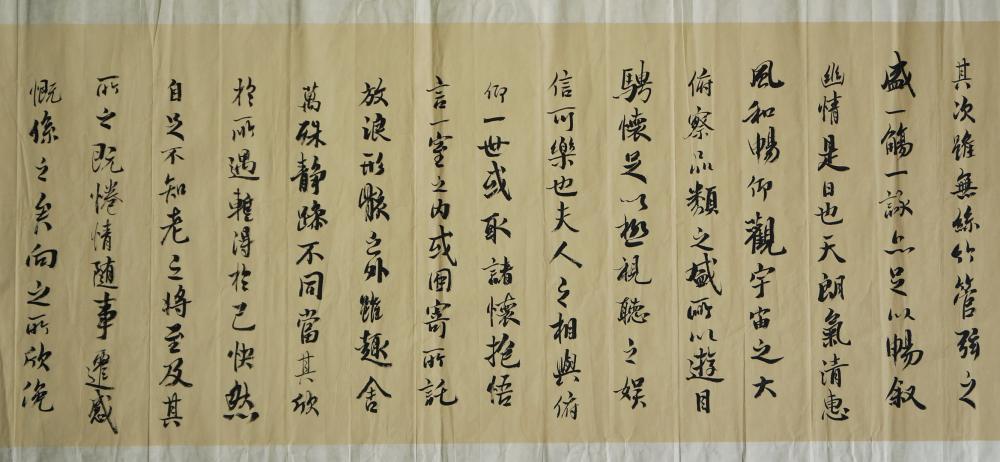 其次雖無絲竹管弦之
盛一觴一詠亦足以暢叙
幽情是日也天朗氣清惠
風和暢仰觀宇宙之大
俯察品類之盛所以遊目
騁懷足以極視聽之娱
信可樂也夫人之相與俯
仰一世或取諸懷抱悟
言一室之内或因寄所託
放浪形骸之外雖趣舍
萬殊静躁不同當其欣
於所遇暫得於己快然
自足不知老之將至及其
所之既惓情随事遷感
慨係之矣向之所欣俛